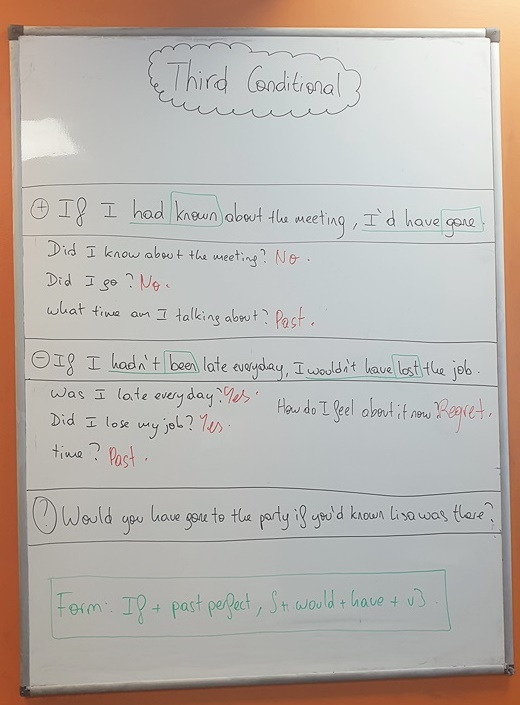 Third Conditional
+ If I had known about the meeting, I'd have gone.
Did I know about the meeting? No.
Did I go? No.
What time am I talking about? Past.
- If I hadn't been late everyday, I wouldn't have lost the job.
Was I late everyday? Yes.
How do I feel about it now? Regret.
Did I lose my job? Yes.
time? Past.
? Would you have gone to the party if you'd known Lisa was there?
Form: If + past perfect, S + would + have + v3.